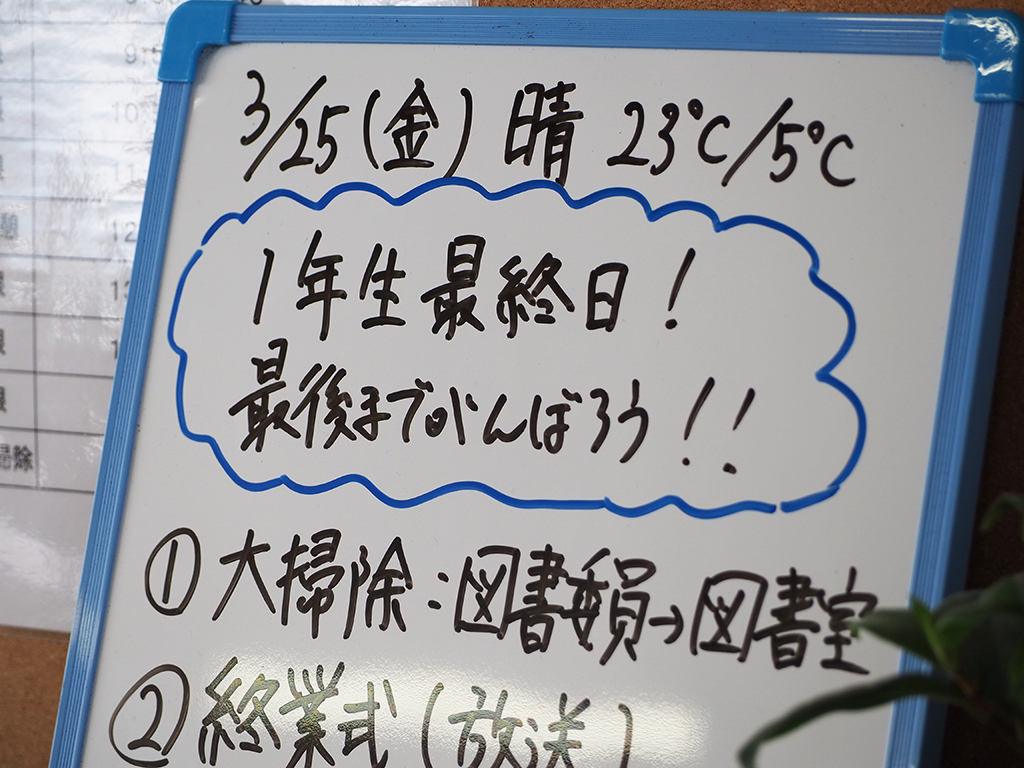 3/25(金) 晴 23℃/5℃
1年生最終日!
最後までがんばろう!!
①大掃除:図書委員→図書室
②終業式(放送)